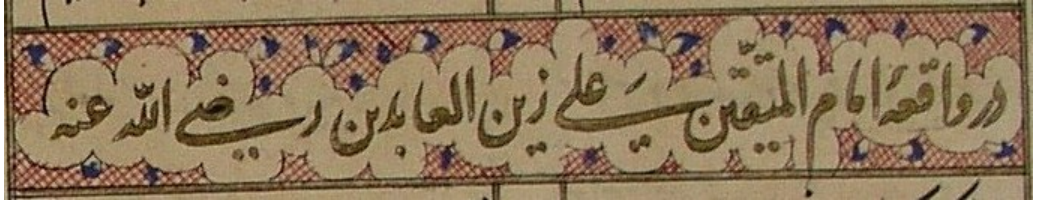 در واقعهٔ امام المتقین علی زین العابدین رضی الله عنه